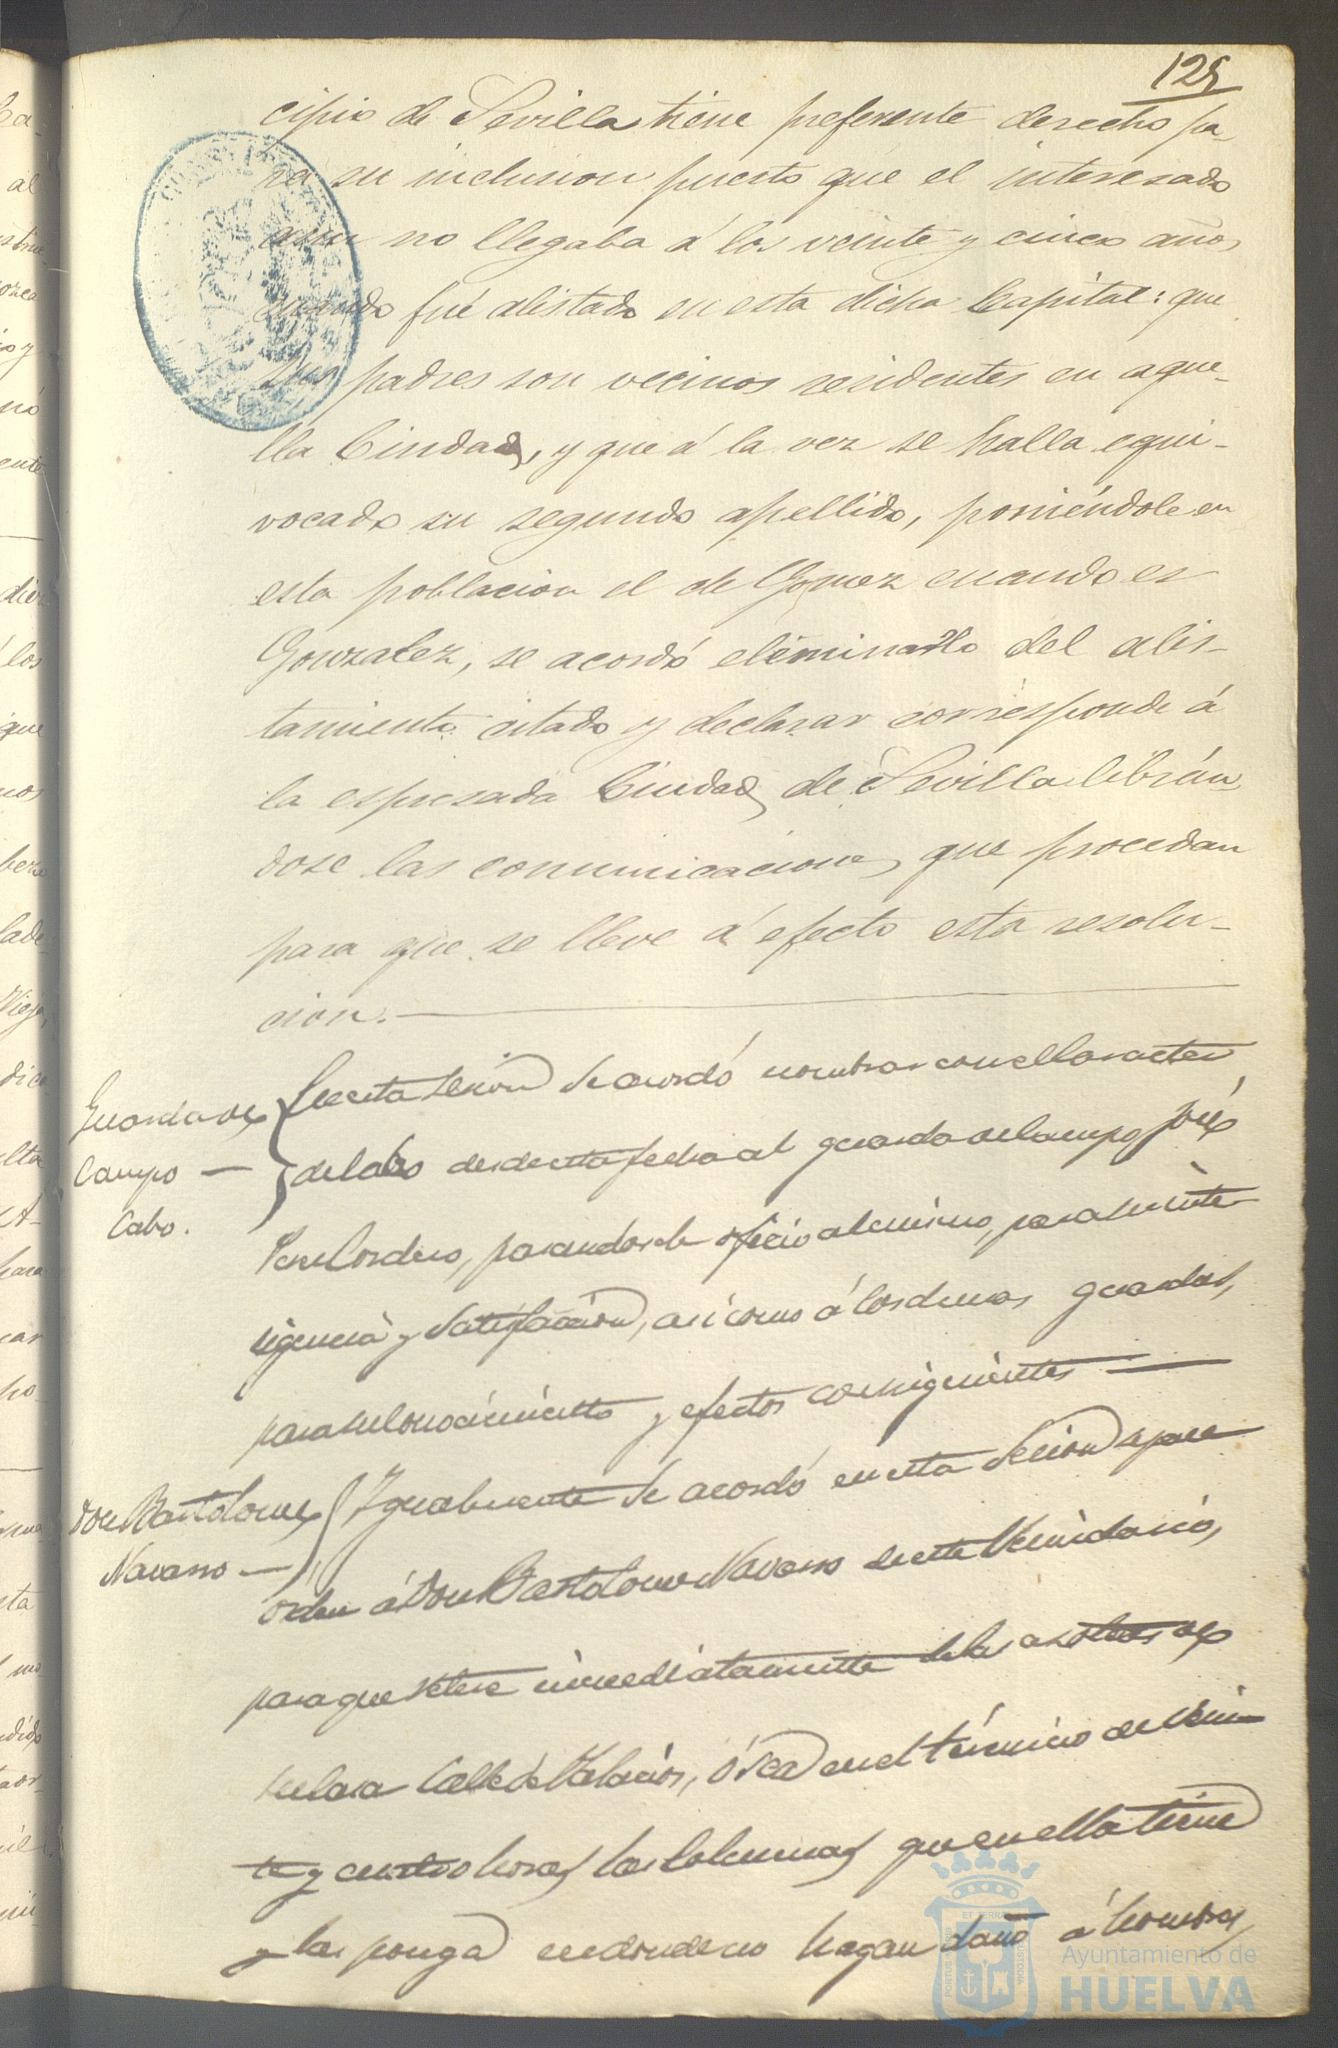 125
cipio de Sevilla tiene preferente derecho pa-
ra su inclusion puesto que el interesado
aun no llegaba á los veinte y cinco años
cuando fué alistado en esta dicha Capital: que
sus padres son vecinos residentes en aque-
lla Ciudad, y que á la vez se halla equi-
vocado su segundo apellido, poniéndole en
esta poblacion el de Gomez cuando es
Gonzalez, se acordó eliminarlo del alis-
tamiento citado y declarar corresponde á
la espresada Ciudad de Sevilla librán
dose las comunicaciones que procedan
para que se lleve á efecto esta resolu-
cion.
Guarda de
Campo —
Cabo.
En esta sesion se acordó nombrar con el caracter
de Cabo desde esta fecha al guarda de campo José
Cordero, pasandosele oficio al mismo, para su inte
ligencia y satisfaccion, asi como á los demas guardas,
para su conocimiento y efectos consiguientes —
Don Bartolome
Navarro —
Igualmente se acordó en esta Sesion se pase
orden á Don Bartolome Navarro de este Vecindario,
para que retire inmediatamente de las azoteas de
su casa Calle de Palacios, ó sea en el término de vein-
te y cuatro horas las Colmenas que en ella tiene
y las ponga en donde no hagan daño á hombres
PORTUS MARIS ET TERRAE CUSTODIA
Ayuntamiento de
HUELVA